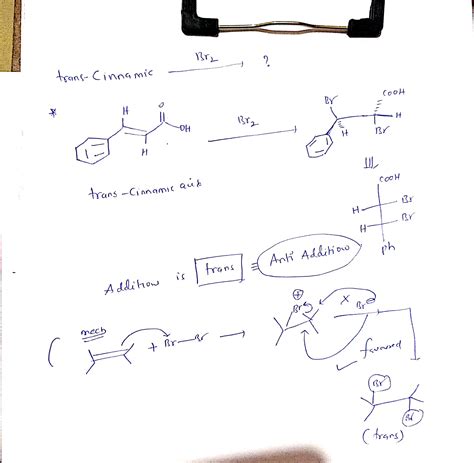 trans-Cinnamic Br2 ?
* H O OH H
Br2
Br COOH H H Br
trans-Cinnamic acid
COOH
H Br
H Br
ph
Addition is trans ≡ Anti Addition
( mech
+ Br-Br
⊕
Br x Br⊖
favoured
Br
Br
(trans)